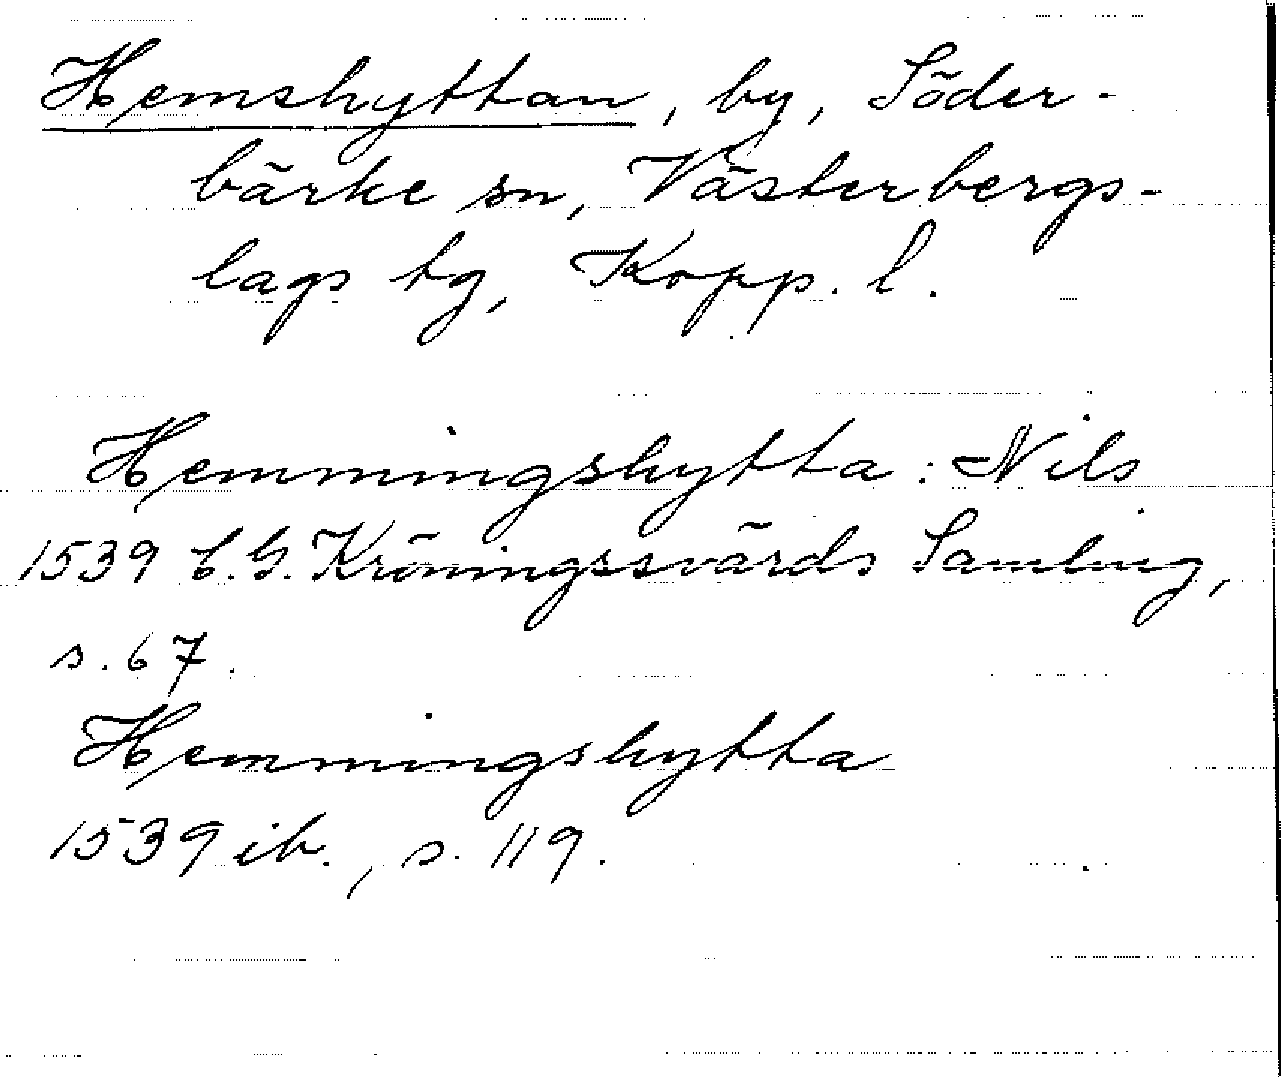 Hemshyttan, by, Söder-
bärke sn, Västerbergs-
lags tg, Kopp. l.
Hemmingshytta: Nils
1539 C.G. Kröningssvärds Samling,
s. 67.
Hemmingshytta
1539 ib., s. 119.